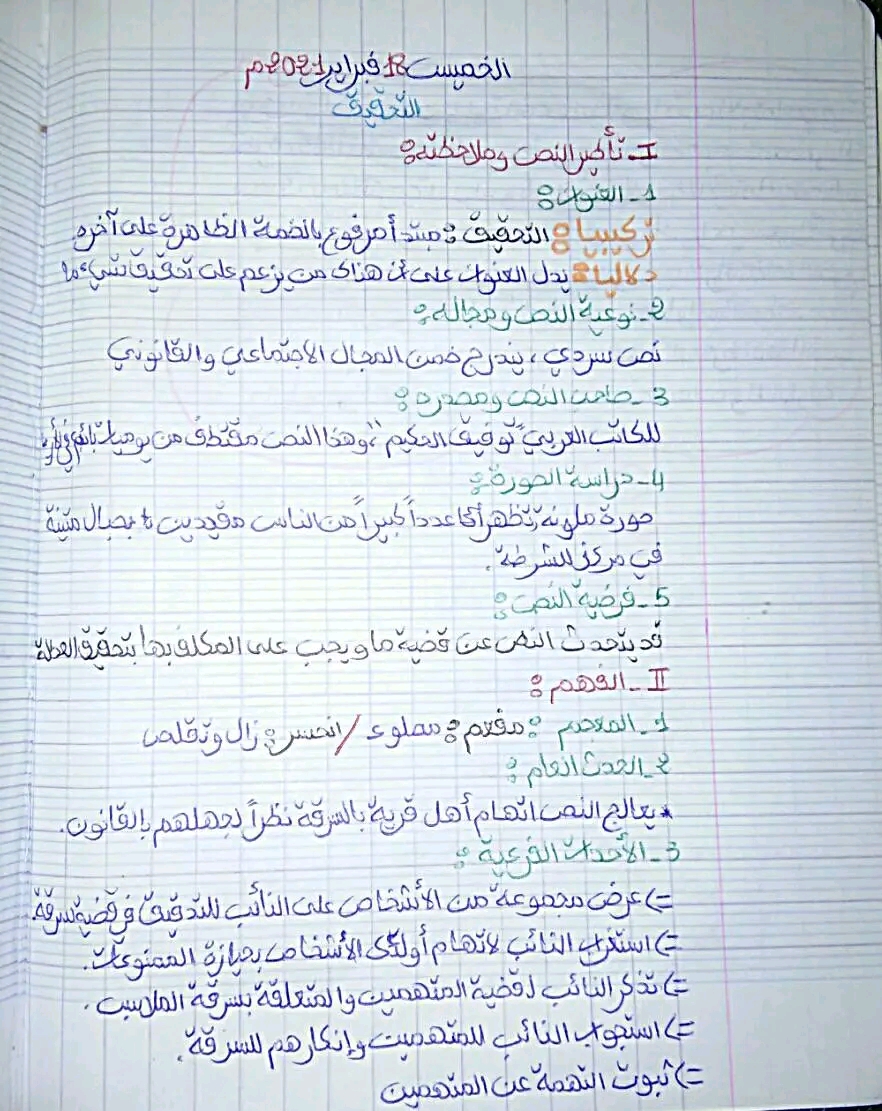 الخميس 18 فبراير 2021م
التحقيق
I- تأطير النص وملاحظته:
1- العنوان:
تركيبيا: التحقيق: مبتدأ مرفوع بالضمة الظاهرة على آخره.
دلاليا: يدل العنوان على أن هناك من يزعم على تحقيق شيء ما
2- نوعية النص ومجاله:
نص سردي، يندرج ضمن المجال الاجتماعي والقانوني
3- صاحب النص ومصدره:
للكاتب العربي "توفيق الحكيم"، وهذا النص مقتطف من يوميات نائب في
4- دراسة الصورة:
صورة ملونة تظهر لنا عدداً كبيراً من الناس مقيدين بحبال متينة
في مركز للشرطة.
5- فرضية النص:
قد يتحدث النص عن قضية ما ويجب على المكلف بها بتحقيق العدالة
II- الفهم:
1- المعجم: مفعم: مملوء / انحسر: زال وتقلص
2- الحدث العام:
* يعالج النص اتهام أهل قرية بالسرقة نظراً لجهلهم بالقانون.
3- الأحداث الفرعية:
=> عرض مجموعة من الأشخاص على النائب للتدقيق في قضية سرقة.
=> استغراب النائب لاتهام أولئك الأشخاص بحيازة الممنوعات.
=> تذكر النائب لقضية المتهمين والمتعلقة بسرقة الملابس.
=> استجواب النائب للمتهمين وإنكارهم للسرقة.
=> ثبوت التهمة عن المتهمين